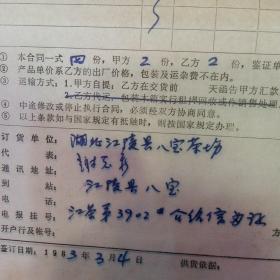 ① 本合同一式 四 份，甲方 2 份，乙方 2 份，鉴证单
② 产品单价系乙方的出厂价格，包装及运杂费不在内。
③ 运输方式：1.甲方自提；乙方在交货前 天函告甲方汇款
2.乙方代运，包装木箱实行租押回收或作销售处理，
④ 中途修改或停止执行合同，必须经双方协商同意。
⑤ 以上条款如与国家规定有抵触时，则按国家规定办理。
订货单位： 湖北江陵县八宝
代表：
通讯地址： 江陵县八宝
到站：
电话：
电报挂号： 江荣第3902# 介绍信为证
开户行及帐号： 方
签订日期：1983年3月4日 供货依据：